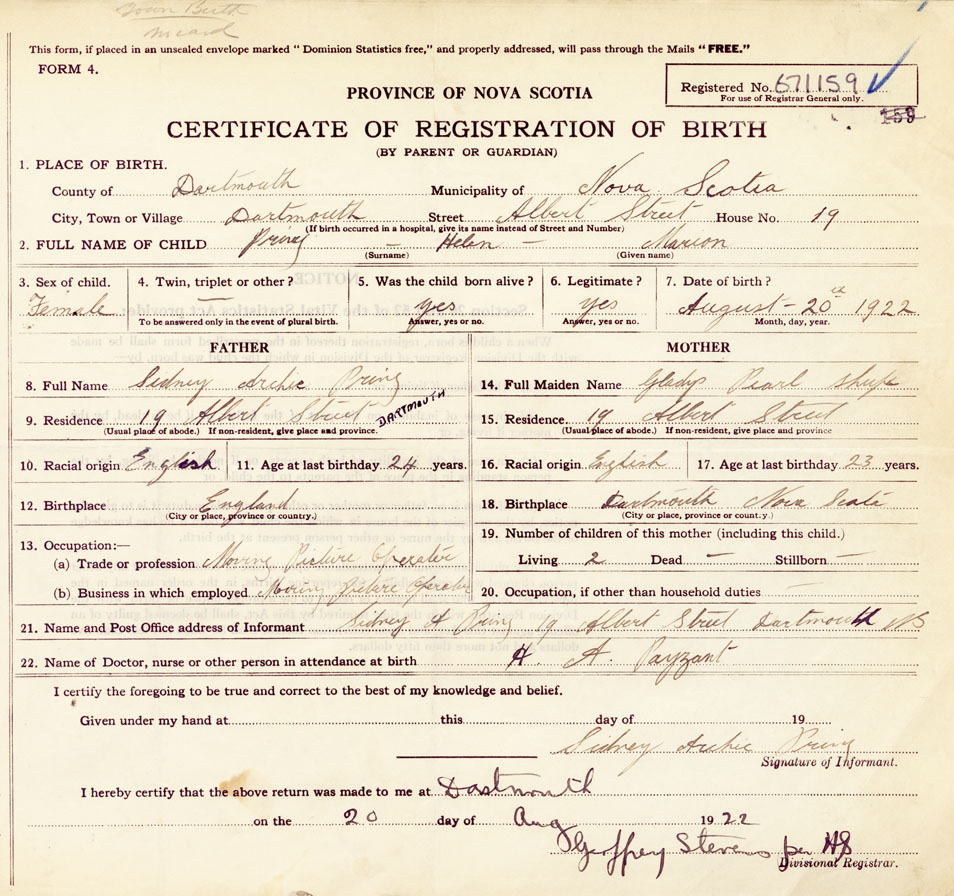 Town Birth
This form, if placed in an unsealed envelope marked "Dominion Statistics free," and properly addressed, will pass through the Mails "FREE."
FORM 4.
Registered No. 671159
For use of Registrar General only.
159
PROVINCE OF NOVA SCOTIA
CERTIFICATE OF REGISTRATION OF BIRTH
(BY PARENT OR GUARDIAN)
1. PLACE OF BIRTH.
County of Dartmouth Municipality of Nova Scotia
City, Town or Village Dartmouth Street Albert Street House No. 19
(If birth occurred in a hospital, give its name instead of Street and Number)
2. FULL NAME OF CHILD Pring – Helen – Marion
(Surname) (Given name)
3. Sex of child. 4. Twin, triplet or other? 5. Was the child born alive? 6. Legitimate? 7. Date of birth?
Female — yes yes August – 20th 1922
To be answered only in the event of plural birth. Answer, yes or no. Answer, yes or no. Month, day, year.
FATHER MOTHER
8. Full Name Sidney Archie Pring 14. Full Maiden Name Gladys Pearl
9. Residence 19 Albert Street DARTMOUTH 15. Residence 19 Albert Street
(Usual place of abode.) If non-resident, give place and province. (Usual place of abode.) If non-resident, give place and province
10. Racial origin English 11. Age at last birthday 24 years. 16. Racial origin English 17. Age at last birthday 23 years.
12. Birthplace England 18. Birthplace Dartmouth Nova Scotia
(City or place, province or country.) (City or place, province or count.y.)
13. Occupation:— 19. Number of children of this mother (including this child.)
(a) Trade or profession Moving Picture Operator Living 2 Dead — Stillborn —
(b) Business in which employed Moving picture Operator 20. Occupation, if other than household duties —
21. Name and Post Office address of Informant Sidney A Pring 19 Albert Street Dartmouth NS
22. Name of Doctor, nurse or other person in attendance at birth H. A. Payzant
I certify the foregoing to be true and correct to the best of my knowledge and belief.
Given under my hand at this day of 19
Sidney Archie Pring
Signature of Informant.
I hereby certify that the above return was made to me at Dartmouth
on the 20 day of Aug 1922
Geoffrey Stevens per HS
Divisional Registrar.